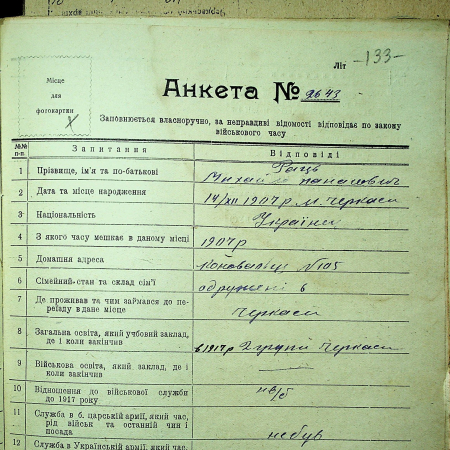 Літ -133-
Місце
для
фотокартки
Анкета № 2643
Заповнюється власноручно, за неправдиві відомості відповідає по закону
військового часу
№№ п-п. Запитання Відповіді
1 Прізвище, ім'я та по-батькові Раць
Михайло Панасович
2 Дата та місце народження 14/XII 1907 р м. Черкаси
3 Національність Українец
4 З якого часу мешкає в даному місці 1907 р
5 Домашня адреса №105
6 Сімейний-стан та склад сім'ї одружені в
7 Де проживав та чим займався до пе-
реїзду в дане місце Черкаси
8 Загальна освіта, який учбовий заклад,
де і коли закінчив в 1917 р 2 групи Черкаси
9 Військова освіта, який заклад, де і
коли закінчив
10 Відношення до військової служби
до 1917 року нв/б
11 Служба в б. царській армії, який час,
рід військ та останній чин і
посада небув
12 Служба в Українській армії, який час,